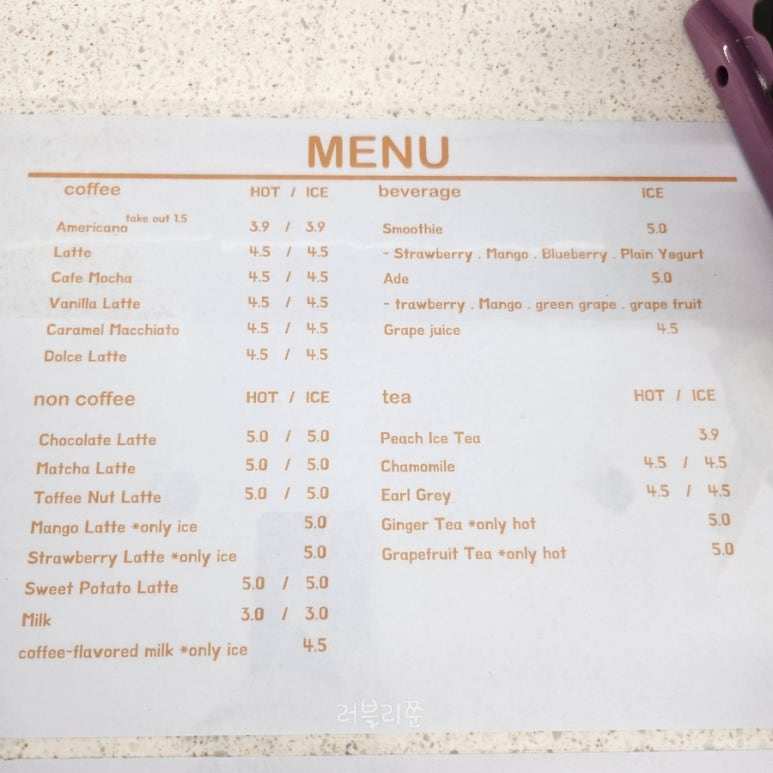 MENU
coffee HOT / ICE
Americano take out 1.5 3.9 / 3.9
Latte 4.5 / 4.5
Cafe Mocha 4.5 / 4.5
Vanilla Latte 4.5 / 4.5
Caramel Macchiato 4.5 / 4.5
Dolce Latte 4.5 / 4.5
non coffee HOT / ICE
Chocolate Latte 5.0 / 5.0
Matcha Latte 5.0 / 5.0
Toffee Nut Latte 5.0 / 5.0
Mango Latte *only ice 5.0
Strawberry Latte *only ice 5.0
Sweet Potato Latte 5.0 / 5.0
Milk 3.0 / 3.0
coffee-flavored milk *only ice 4.5
beverage ICE
Smoothie 5.0
- Strawberry . Mango . Blueberry . Plain Yogurt
Ade 5.0
- trawberry . Mango . green grape . grape fruit
Grape juice 4.5
tea HOT / ICE
Peach Ice Tea 3.9
Chamomile 4.5 / 4.5
Earl Grey 4.5 / 4.5
Ginger Tea *only hot 5.0
Grapefruit Tea *only hot 5.0
러블리쭌